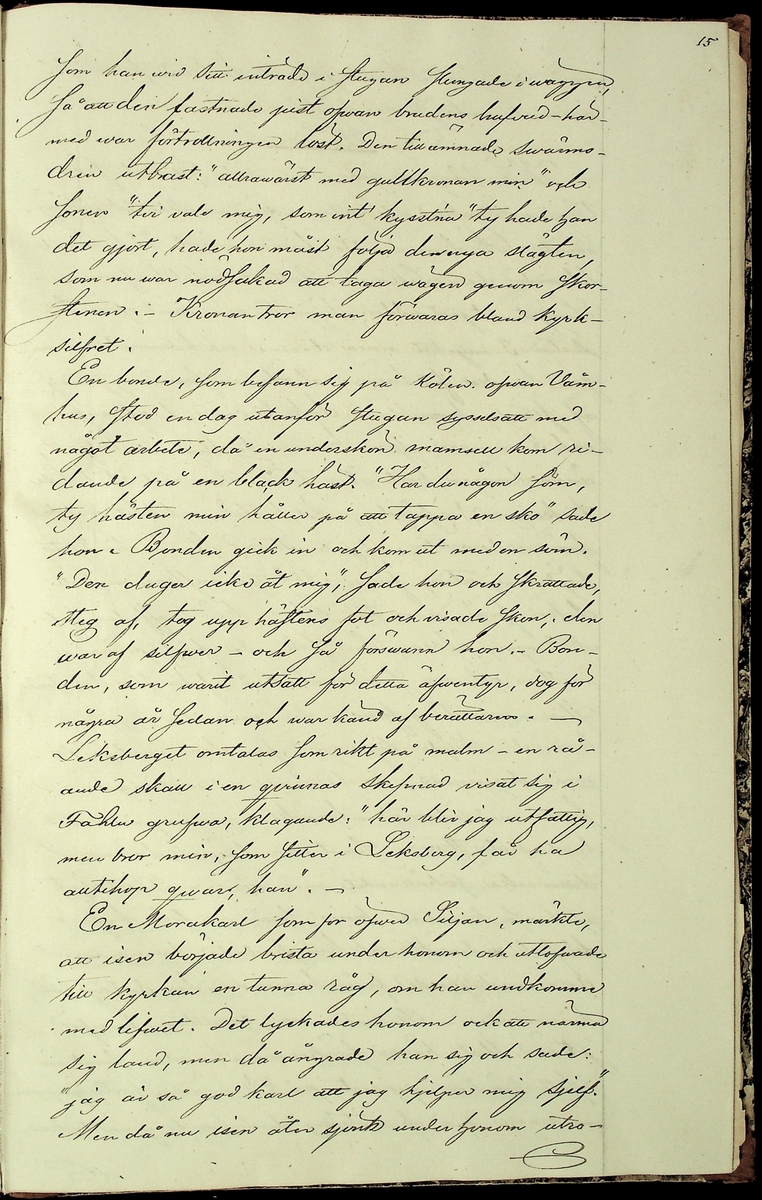 15
som han wid sitt inträde i stugan slungade i wäggen,
så att den fastnade just ofwan brudens hufwud – här-
med war förtrollningen löst. Den tillämnade swärmo-
dren utbrast: "altrawärst med gullkronan min" och
sonen "twi vale mig, som int' kysst'na" ty hade han
det gjort, hade hon måst följa den nya slägten,
som nu war nödsakad att taga wägen genom skor-
stenen. – Kronan tror man förwaras bland kyrk-
silfret.
En bonde, som befann sig på Kölen ofwan Våm-
hus, stod en dag utanför stugan sysselsatt med
något arbete, då en underskön mamsell kom ri-
dande på en black häst. "Har du någon söm,
ty hästen min håller på att tappa en sko" sade
hon. Bonden gick in och kom ut med en söm.
"Den duger icke åt mig", sade hon och skrattade,
steg af, tog upp hästens fot och visade skon, den
war af silfwer – och så förswann hon. – Bon-
den, som warit utsatt för detta äfwentyr, dog för
några år sedan och war känd af berättaren. –
Leksberget omtalas som rikt på malm – en rå-
ande skall i en qvinnas skepnad visat sig i
Fahlu grufwa, klagande: "här blir jag utfattig,
men bror min, som sitter i Leksberg, får ha
alltihop qwar, han". –
En Morakarl som for öfwer Siljan, märkte,
att isen började brista under honom och utlofwade
till kyrkan en tunna råg, om han undkomme
med lifwet. Det lyckades honom ock att närma
sig land, men då ångrade han sig och sade:
"jag är så god karl att jag hjelper mig sjelf."
Men då nu isen åter sjönk under honom utro-